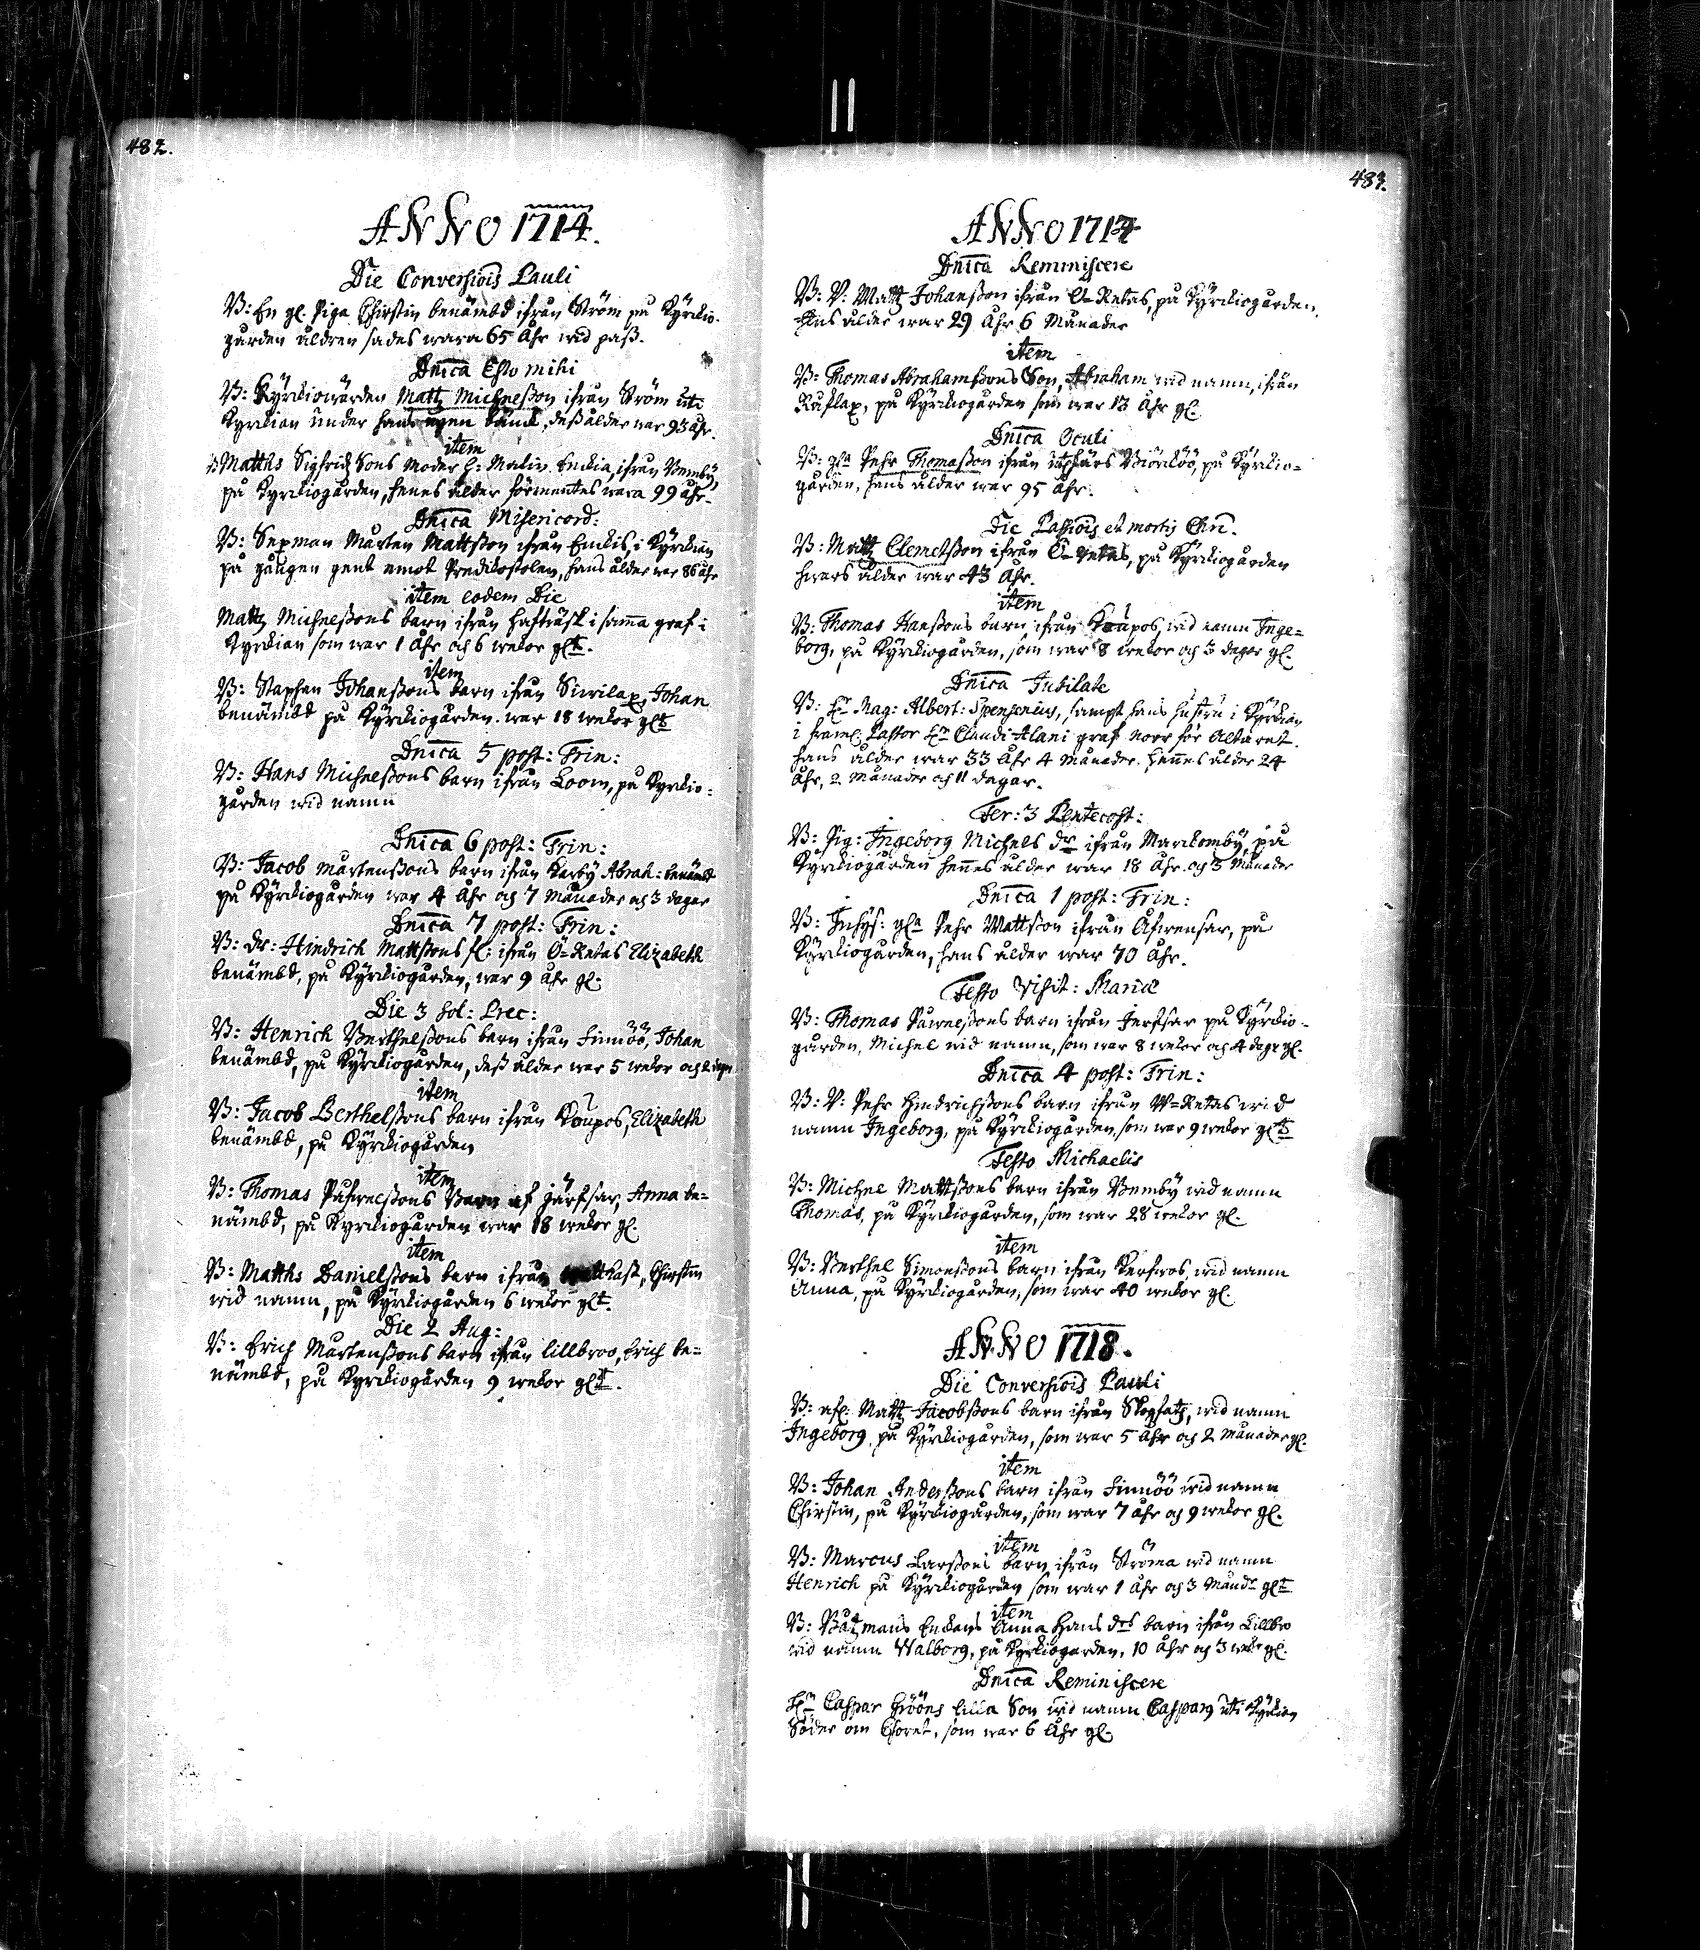 482.
ANNO 1714.
Die Conversiois Pauli
B: En gl. Piga Chirstin benämbd ifrån Ström på Kyrkio-
gården åldren sades wara 65 åhr wid paß.
Dnica Esto mihi
B: Kyrkiowärden Matts Michelsson ifrån Ström uti
Kyrkian under hans egen bänck, deß ålder war 93 åhr.
item
B: Matths Sigfridz Sons Moder H: Malin Enckia, ifrån Bemböj
på Kyrkiogården, henes ålder förmentes wara 99 åhr.
Dnica Misericord:
B: Sexman Mårten Mattsson ifrån Emkis, i Kyrkian
på gången gent emot Predikostolen, hans ålder war 86 åhr
item eodem Die
Matts Michelssons barn ifrån Hafträsk i sama graf i
Kyrkian som war 1 åhr och 6 wekor glt.
item
B: Staphan Johanssons barn ifrån Siwilax, Johan
benämbd på Kyrkiogården. war 18 wekor glt
Dnica 5 post: Trin:
B: Hans Michelssons barn ifrån Loom, på Kyrkio-
gården wid namn
Dnica 6 post: Trin:
B: Jacob Mårtenssons barn ifrån Karby Abrah: benämbd
på Kyrkiogården war 4 åhr och 7 Månader och 3 dagar
Dnica 7 post: Trin:
B: Dr: Hindrich Mattssons fl: ifrån Ö-Retas Elizabeth
benämbd, på Kyrkiogården, war 9 åhr gl:
Die 3 Sol: Prec:
B: Henrich Berthelssons barn ifrån Finnöö, Johan
benämbd, på Kyrkiogården, deß ålder war 5 wekor och 2 dagar
item
B: Jacob Berthelssons barn ifrån Koupos, Elizabeth
benämbd, på Kyrkiogården
item
B: Thomas Påhwelssons Barn af Järfsar, Anna be-
nämbd, på Kyrkiogården war 18 wekor gl.
item
B: Matths Danielssons barn ifrån Chirstin
wid namn, på Kyrkiogården 6 wekor glt.
Die 2 Aug:
B: Erich Mårtenssons barn ifrån Lillbroo, Erich be-
nämbd, på Kyrkiogården 9 wekor glt.
483.
ANNO 1717
Dnica Reminiscere
B: V: Matz Johansson ifrån Ö-Retas, på Kyrkiogården,
Hans ålder war 29 Åhr 6 Månader
item
B: Thomas Abrahamssons Son, Abraham wid namn, ifrån
Ruflax, på Kyrkiogården som war 13 Åhr gl.
Dnica Oculi
B: gla Pehr Thomasson ifrån utskärs Biörköö, på Kyrkio-
gården, hans ålder war 95 Åhr.
Die Passiois et mortis Chri.
B: Matz Clemetsson ifrån Ö-Retas, på Kyrkiogården
hwars ålder war 43 Åhr.
item
B: Thomas Hanssons barn ifrån Koupos, wid namn Inge-
borg, på Kyrkiogården, som war 8 wekor och 3 dagar gl.
Dnica Jubilate
B: Hr Mag: Albert: Spensenius, sampt hans hustru i Kyrkian
i framl: Pastor Hr Claudi Alani graf norr för Altaret.
hans ålder war 33 Åhr 4 Månader. henes ålder 24
Åhr, 2 Månader och 11 dagar.
Fer: 3 Pentecost:
B: Pig: Ingeborg Michels dr ifrån Markomby, på
Kyrkiogården henes ålder war 18 Åhr och 3 Månader
Dnica 1 post: Trin:
B: Inhys: gla Pehr Mattsson ifrån Åfwensar, på
Kyrkiogården, hans ålder war 70 Åhr.
Festo Visit: Mariæ
B: Thomas Påwelssons barn ifrån Jerfsar på Kyrkio-
gården, Michel wid namn, som war 8 wekor och 4 dagr gl.
Dnica 4 post: Trin:
B: V: Pehr Hindrichssons barn ifrån W-Retas wid
namn Ingeborg, på Kyrkiogården, som war 9 wekor glt
Festo Michaelis
B: Michel Mattssons barn ifrån Bemböj wid namn
Thomas, på Kyrkiogården, som war 28 wekor gl.
item
B: Berthel Simonssons barn ifrån Kerfwos, wid namn
Anna, på Kyrkiogården, som war 40 wekor gl.
ANNO 1718.
Die Conversiois Pauli
B: afl: Matz Jacobssons barn ifrån Skogsats, wid namn
Ingeborg, på Kyrkiogården, som war 5 Åhr och 2 Månader gl.
item
B: Johan Anderssons barn ifrån Finnöö wid namn
Chirstin, på Kyrkiogården, som war 7 åhr och 9 wekor gl.
item
B: Marcus Larssons barn ifrån Ströma wid namn
Henrich på Kyrkiogården som war 1 Åhr och 3 Månadr glt
item
B: Båtzmans Enckans Anna Hans drs barn ifrån Lillbro
wid namn Walborg, på Kyrkiogården, 10 Åhr och 3 wekr gl.
Dnica Reminiscere
Hr Caspar Grööns lilla Son wid namn Casparg uti Kyrkian
Söder om Choret, som war 6 Åhr gl.
FILM